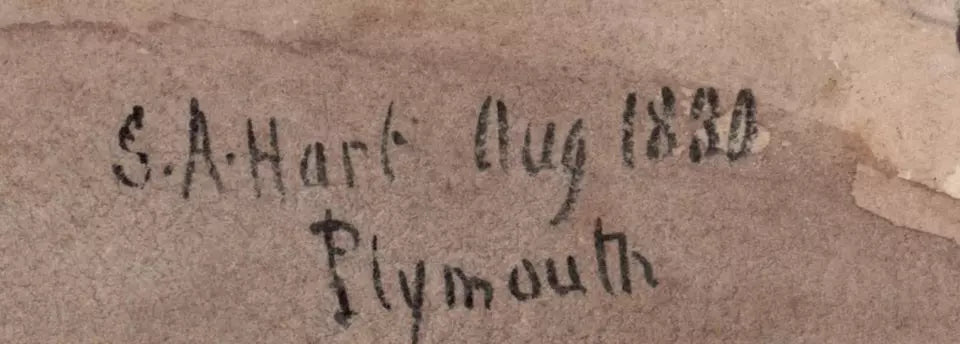 S. A. Hart Aug 1830
Plymouth